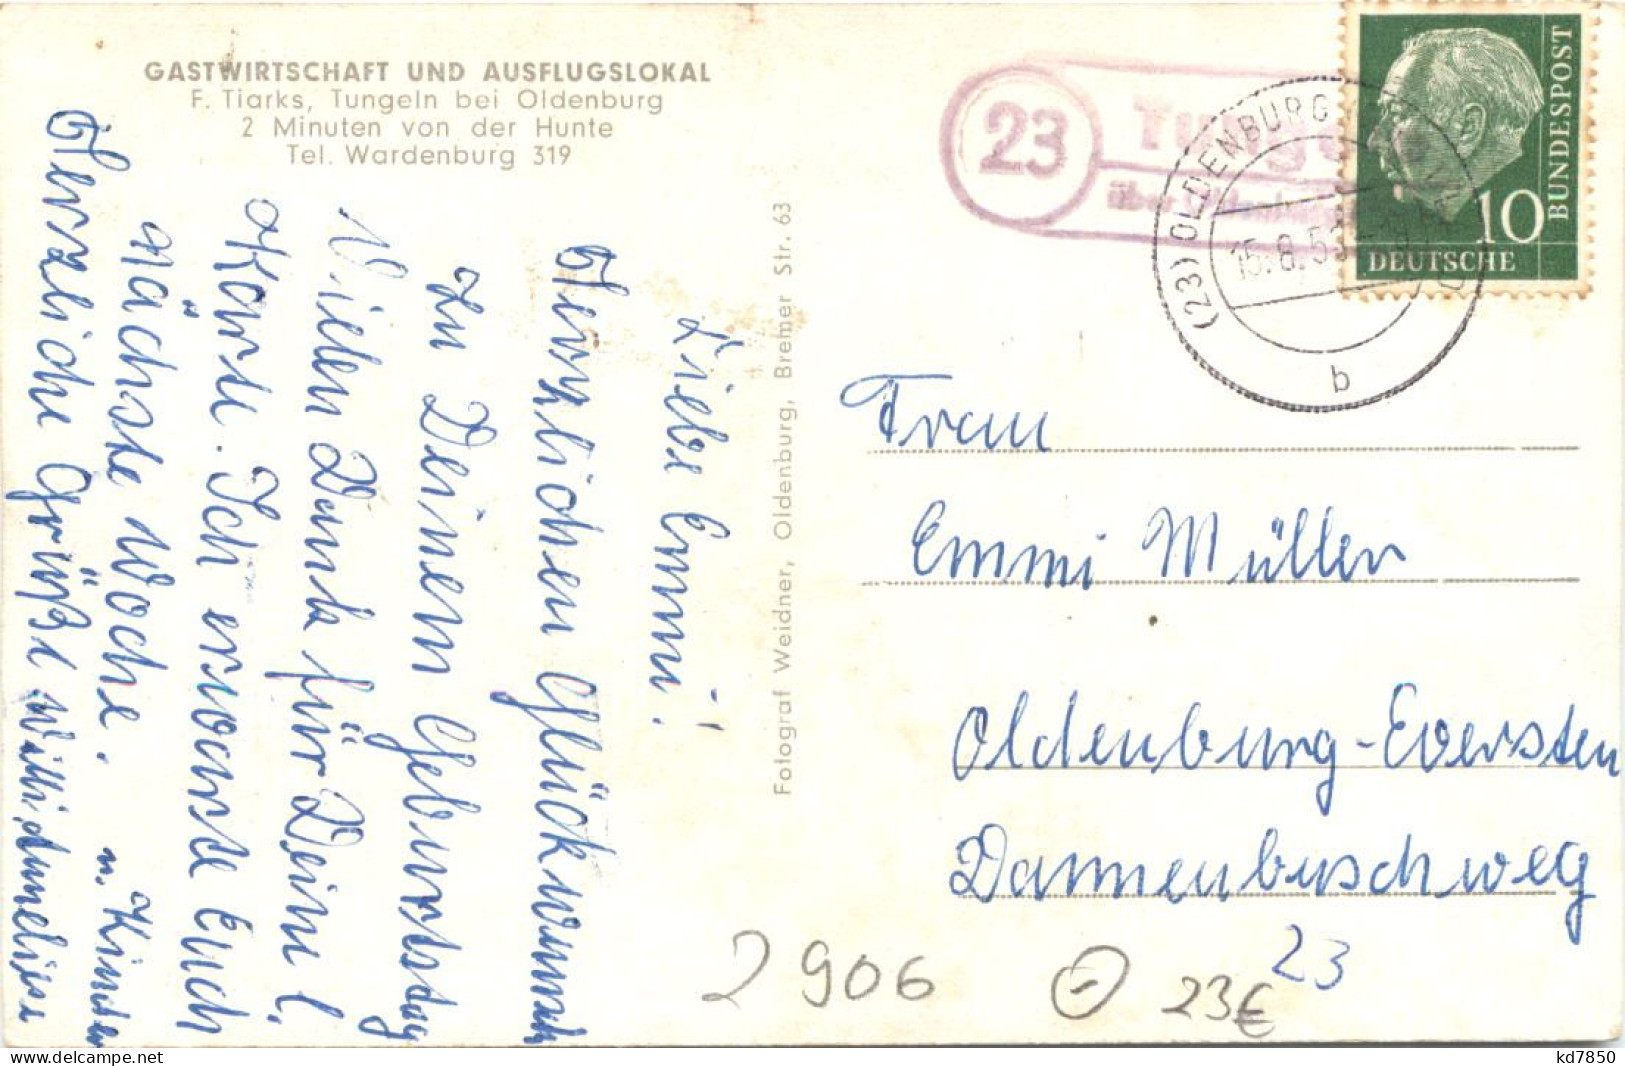 GASTWIRTSCHAFT UND AUSFLUGSLOKAL
F. Tiarks, Tungeln bei Oldenburg
2 Minuten von der Hunte
Tel. Wardenburg 319
Liebe Emmi!
Herzlichen Glückwunsch
zu Deinem Geburtstag
Vielen Dank für Deine l.
Karte. Ich erwarte Euch
nächste Woche.
Herzliche Grüße Willi, Anneliese
u. Kinder
Fotograf Weidner, Oldenburg, Bremer Str. 63
23
über Oldenburg
(23) OLDENBURG
15.8.5
b
10
DEUTSCHE
BUNDESPOST
Frau
Emmi Müller
Oldenburg-Eversten
Dannenbuschweg
23
2906
23€
kd7850